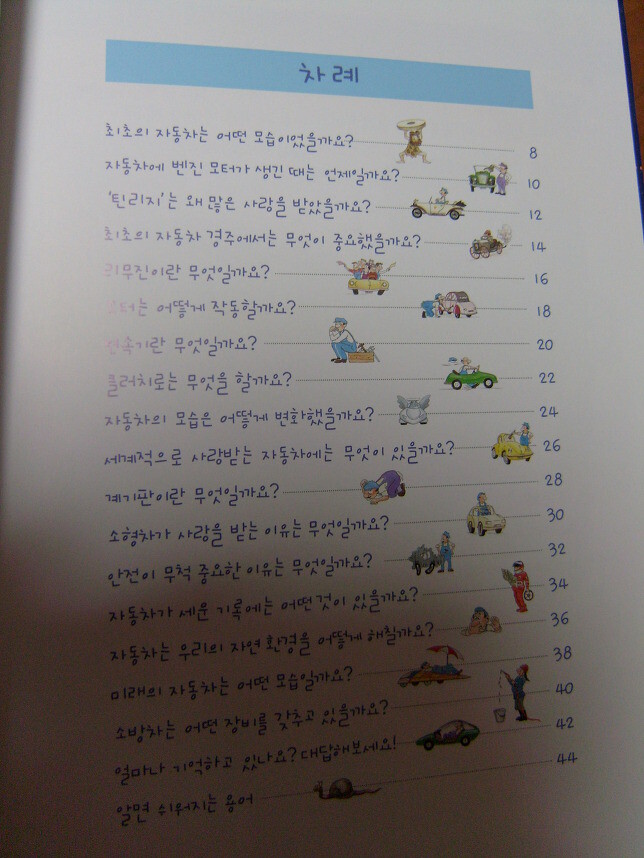 차례
최초의 자동차는 어떤 모습이었을까요? 8
자동차에 벤진 모터가 생긴 때는 언제일까요? 10
'틴리지'는 왜 많은 사랑을 받았을까요? 12
최초의 자동차 경주에서는 무엇이 중요했을까요? 14
리무진이란 무엇일까요? 16
모터는 어떻게 작동할까요? 18
변속기란 무엇일까요? 20
클러치로는 무엇을 할까요? 22
자동차의 모습은 어떻게 변화했을까요? 24
세계적으로 사랑받는 자동차에는 무엇이 있을까요? 26
계기판이란 무엇일까요? 28
소형차가 사랑을 받는 이유는 무엇일까요? 30
안전이 무척 중요한 이유는 무엇일까요? 32
자동차가 세운 기록에는 어떤 것이 있을까요? 34
자동차는 우리의 자연 환경을 어떻게 해칠까요? 36
미래의 자동차는 어떤 모습일까요? 38
소방차는 어떤 장비를 갖추고 있을까요? 40
얼마나 기억하고 있나요? 대답해보세요! 42
알면 쉬워지는 용어 44